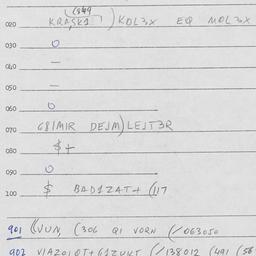 (849
020 KRASK1 ) KOL3X EQ MOL3X
030 O
040 —
050 —
060 O
070 G81MIR DEJM) LEJT3R
080 $+
090 O
100 $ BAD1ZAT+ (117
901 ((VUN, (306 Q1 VORN (/063050
902 V1AZO1OT+G1ZVNT (/138012 (491 (58